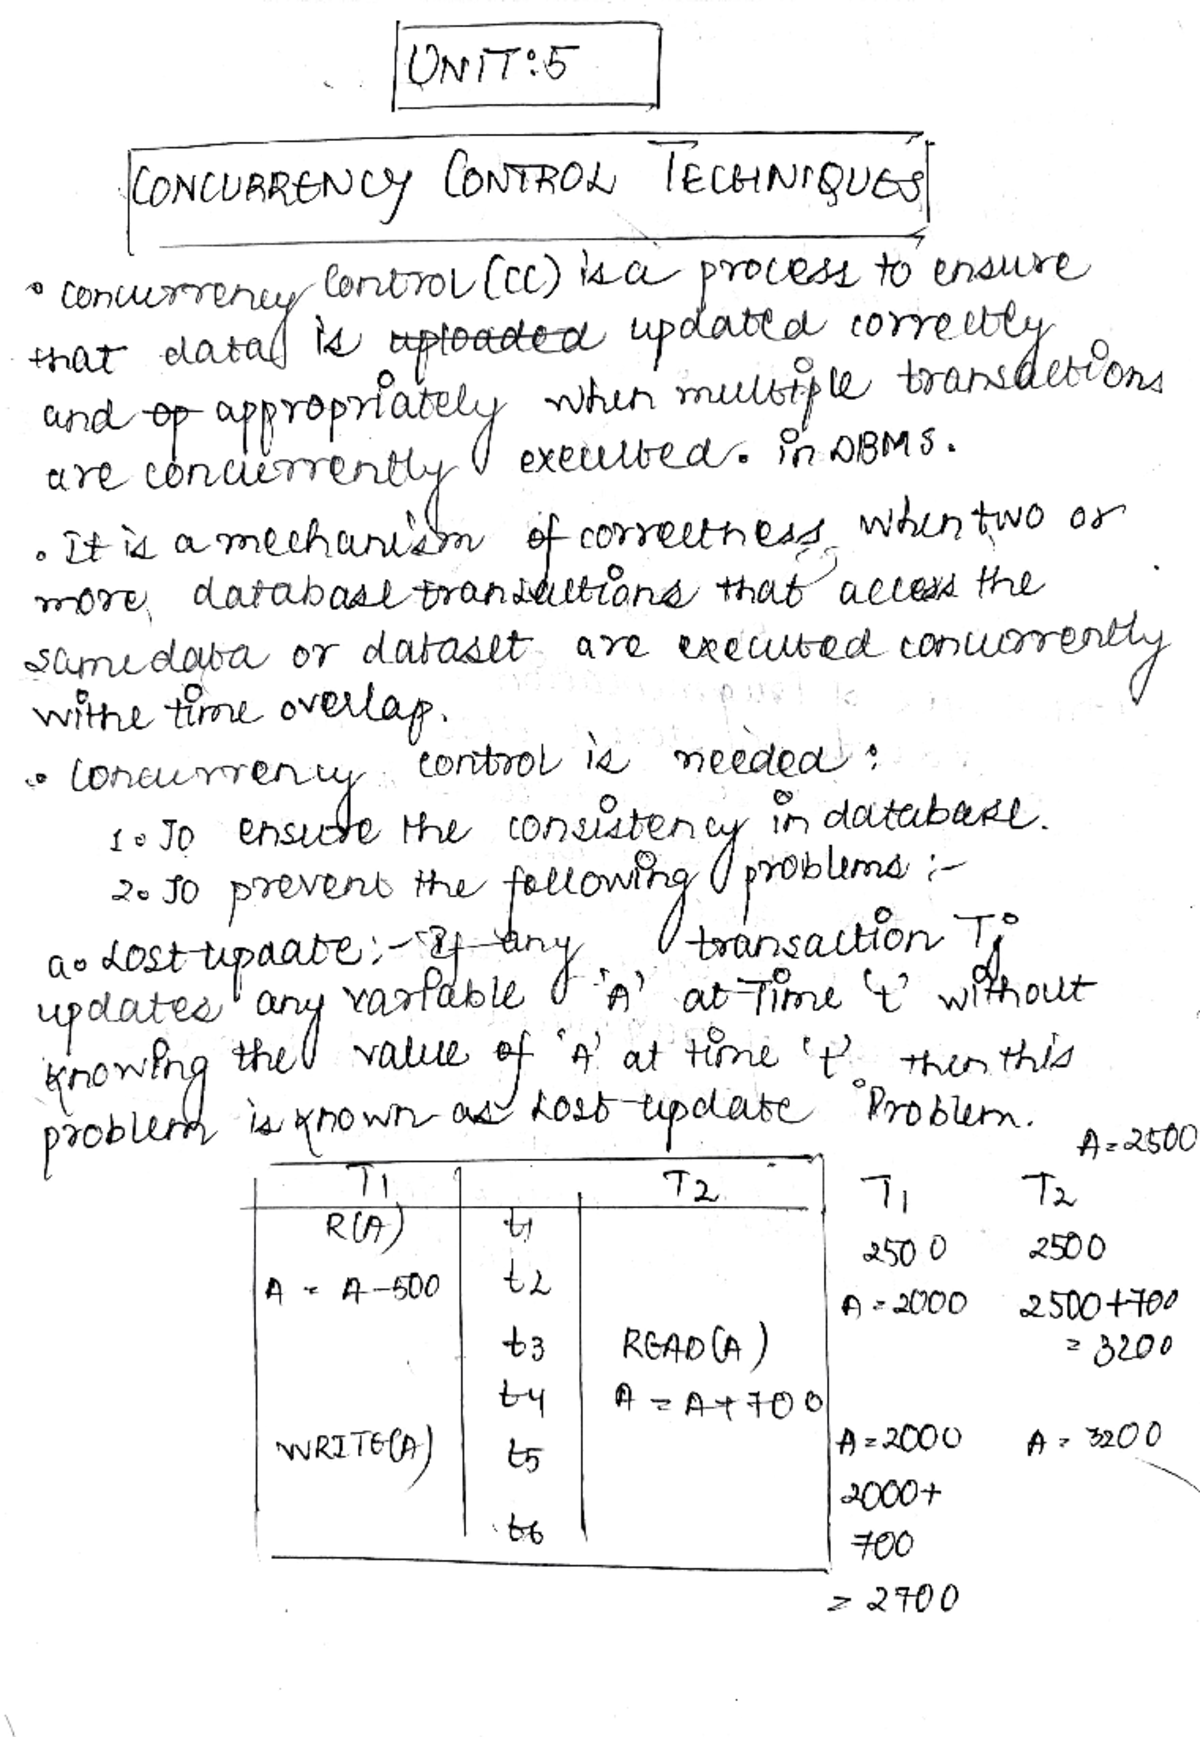 UNIT:5
CONCURRENCY CONTROL TECHNIQUES
• concurrency Control (CC) is a process to ensure
that data is uploaded updated correctly
and op appropriately when multiple transactions
are concurrently executed. in DBMS.
• It is a mechanism of correctness when two or
more database transactions that access the
same data or dataset are executed concurrently
withe time overlap.
• Concurrency control is needed :
1. To ensure the consistency in database.
2. To prevent the following problems :-
a. Lost update :- If any transaction Tj
updates any variable 'A' at Time 't' without
knowing the value of 'A' at time 't' then this
problem is known as Lost update Problem.
A = 2500
T1 T2 T1 T2
R(A) t1 2500 2500
A = A-500 t2 A = 2000 2500+700
t3 READ(A) = 3200
t4 A = A+700
WRITE(A) t5 A = 2000 A = 3200
2000+
t6 700
= 2700